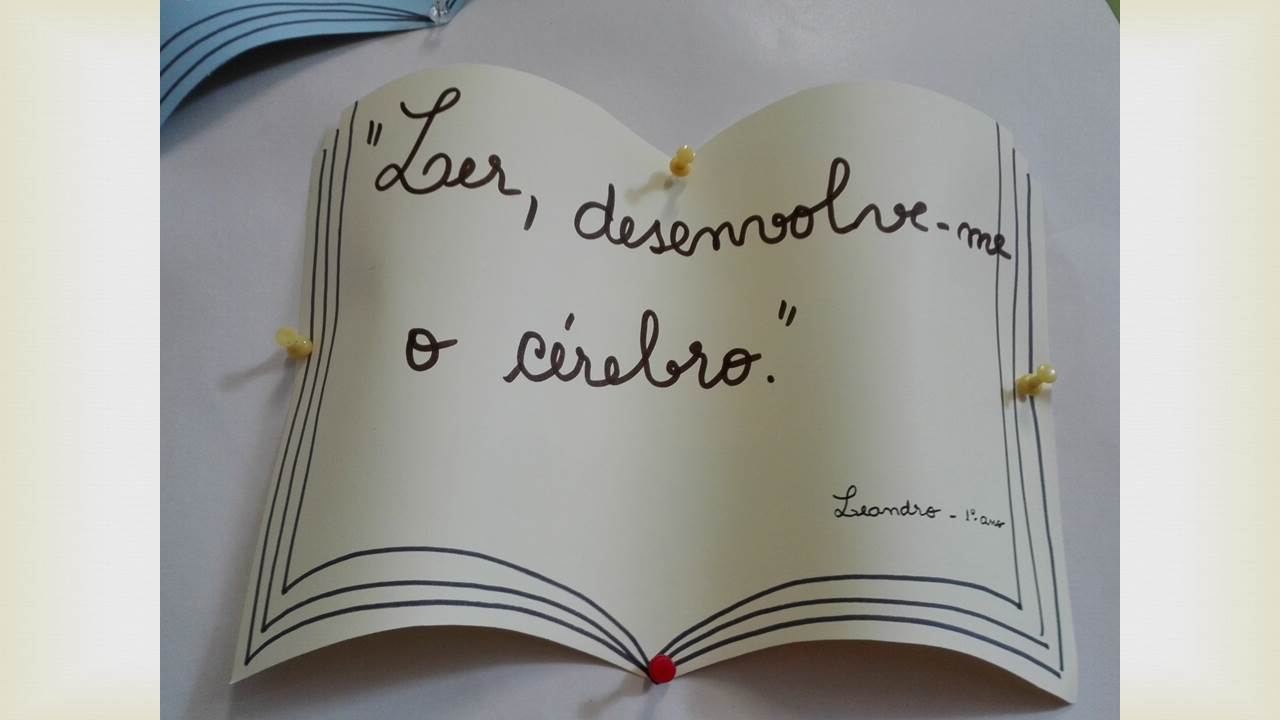 "Ler, desenvolve-me
o cérebro."
Leandro - 1º. ano